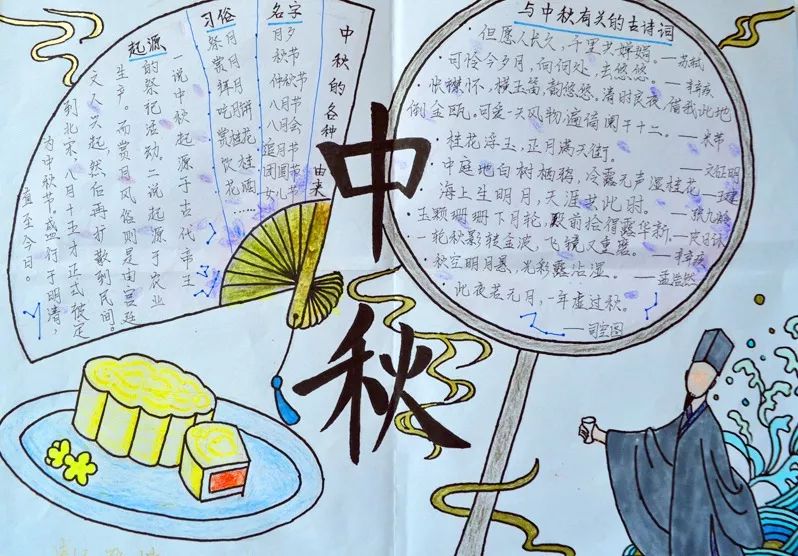 中秋的各种
由来
名字
月夕
秋节
仲秋节
八月节
八月会
追月节
团圆节
女儿节
习俗
祭月
赏月
拜月
吃月饼
赏桂花
饮桂
花酒
……
起源
一说中秋起源于古代帝王
的祭祀活动。二说起源于农业
生产。而赏月风俗则是由宫廷
文人兴起,然后再扩散到民间。
到北宋,八月十五才正式被定
为中秋节。盛行于明清,
直至今日。
中
秋
与中秋有关的古诗词
·但愿人长久,千里共婵娟。—苏轼
·可怜今夕月,向何处,去悠悠。
—辛弃疾
·快襟怀,横玉笛,韵悠悠。清时良夜,借我此地
倒金瓯。可爱一天风物,遍倚阑干十二。—米芾
·桂花浮玉,正月满天街。
—文征明
·中庭地白树栖鸦,冷露无声湿桂花—王建
·海上生明月,天涯共此时。—张九龄
·玉颗珊珊下月轮,殿前拾得露华新—皮日休
·一轮秋影转金波,飞镜又重磨。—辛弃疾
·秋空明月悬,光彩露沾湿。—孟浩然
·此夜若无月,一年虚过秋。
——司空图